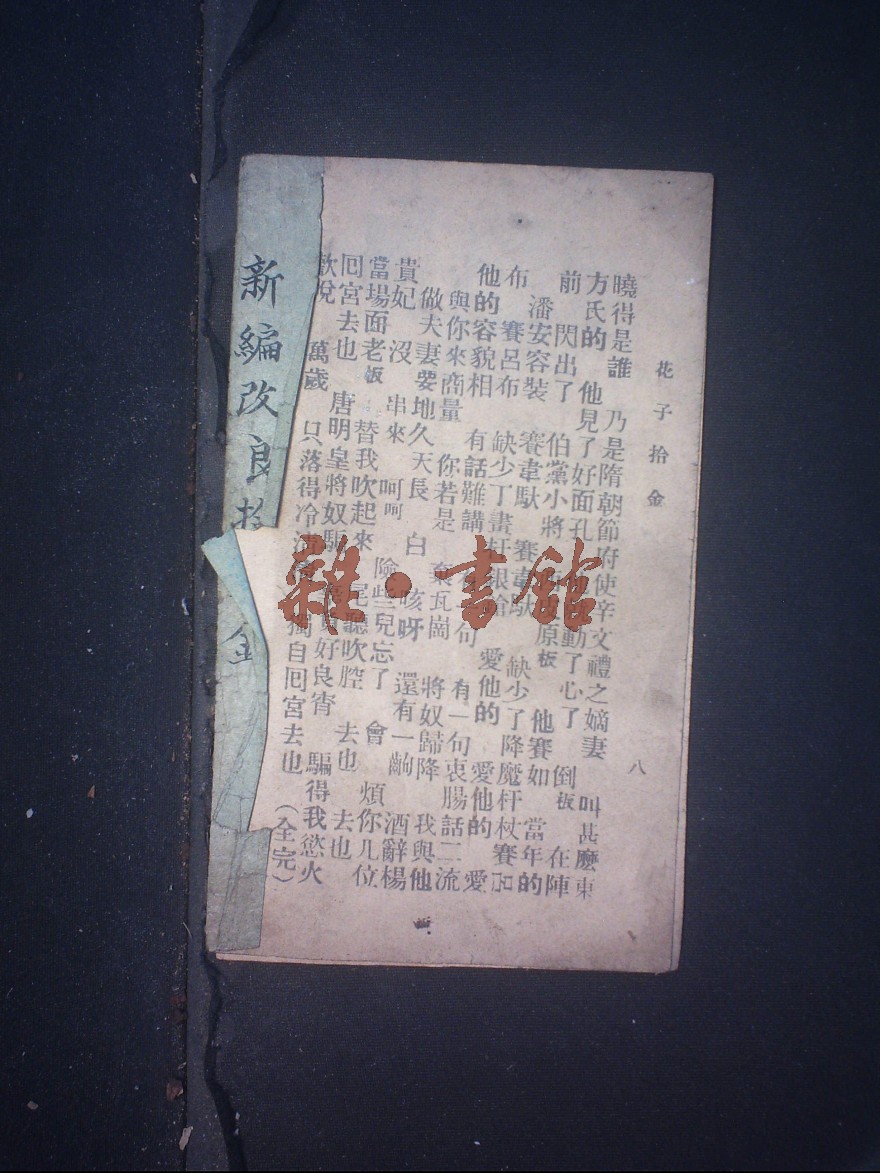 花子拾金
八
曉得是誰 乃是隋朝節府使辛文禮之嫡妻 叫甚麽東
方氏的 他見了好面孔 動了心了 倒板 在陣
前 閃出了 伯黨小將 原板 他賽如 當年的
潘安容裝 賽韋馱 賽韋馱 缺少了降魔杆杖 賽
布 賽呂布 缺少丁畫杆 愛他的 愛他的 愛
他的容貌相 有話難講 有一句 有一句衷腸話二流
與你來商量 你若是 棄瓦崗 將奴歸降 我與他
做夫妻要地久天長 白 咳呀 還有一齣 酒辭楊
貴妃 沒 串來 呵呵 險些兒忘了 會 煩你几位
當場面老板 替我吹起來 尼聽吹腔 去也 去也
囘宮去也 唐明皇將奴騙 好良宵 騙得我慾火
歡悅 萬歲 只落得冷 獨自囘宮去也 (全完)
新編改良拾金
雜·書館